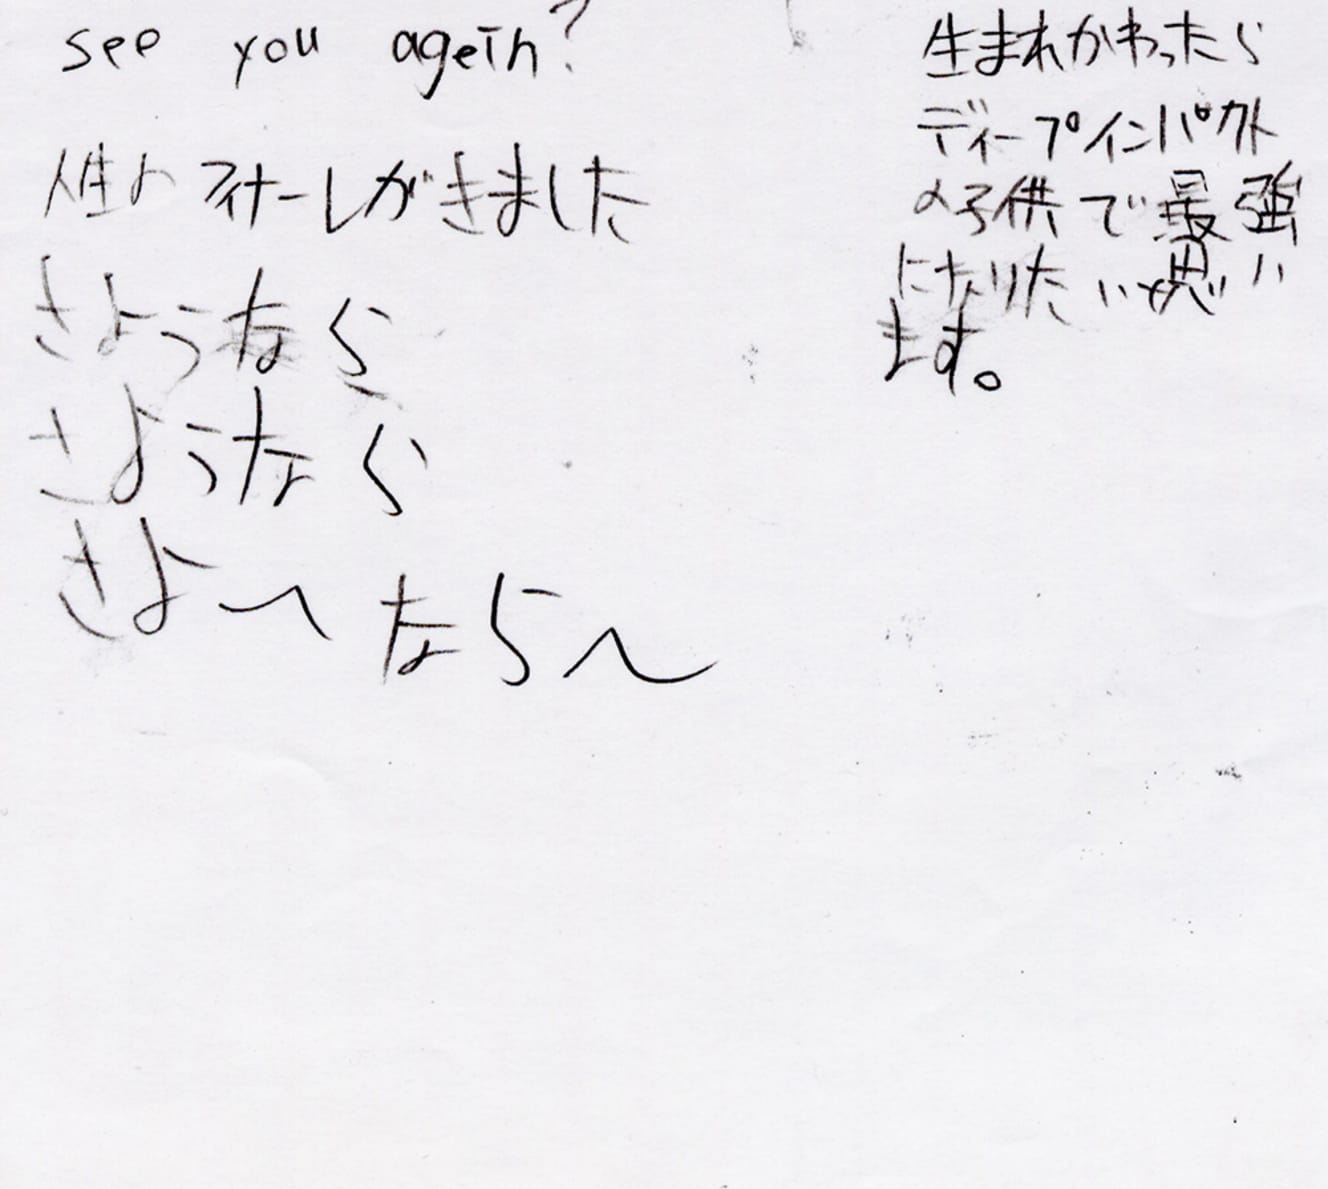 see you agein?
人生のフィナーレがきました
さようなら
さようなら
さよ〜なら〜
生まれかわったら
ディープインパクト
の子供で最強
になりたいと思い
ます。